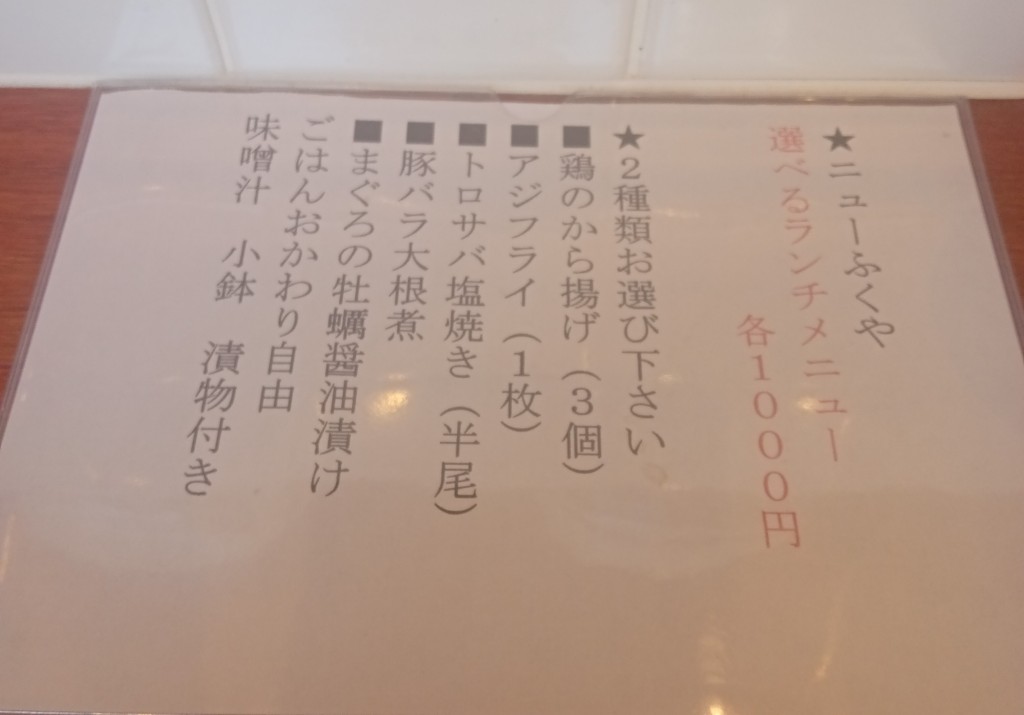 ★ニューふくや
選べるランチメニュー
各1000円
★2種類お選び下さい
■鶏のから揚げ（3個）
■アジフライ（1枚）
■トロサバ塩焼き（半尾）
■豚バラ大根煮
■まぐろの牡蠣醤油漬け
ごはんおかわり自由
味噌汁　小鉢　漬物付き